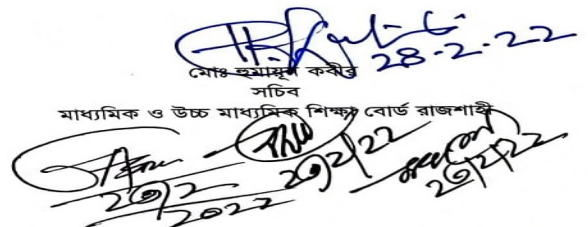 28-2-22
মোঃ হুমায়ূন কবীর
সচিব
মাধ্যমিক ও উচ্চ মাধ্যমিক শিক্ষা বোর্ড রাজশাহী
২৩/২/22
২৩/2
2022
২৩/২/22